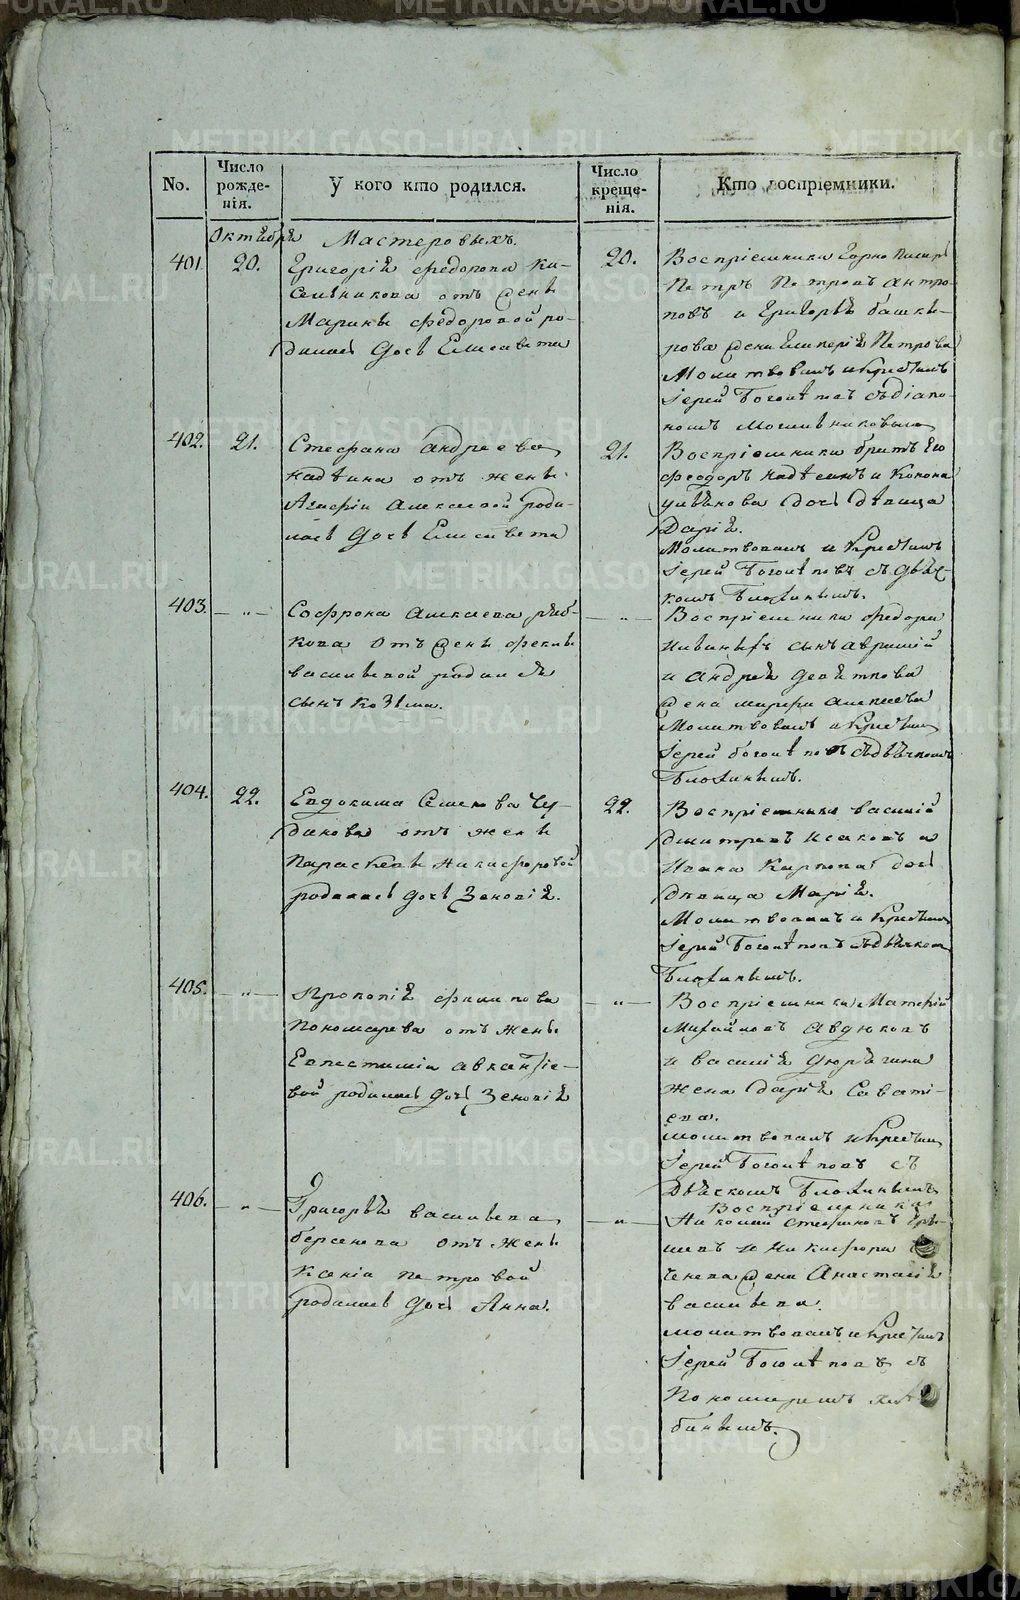 No.
Число рожде- нія.
У кого кто родился.
Число креще- нія.
Кто воспріемники.
Октября Мастеровыхъ.
401.
20.
Григорія Федорова Ки-
сельникова отъ жены
Марины Федоровой ро-
дилась дочь Елисавета
20.
Воспріемники
Петръ Петровъ Антро-
повъ и Григорья Башки-
рова жена Петрова
Молитвовалъ и крестилъ
Іерей Боголѣповъ съ Діако-
номъ
402.
21.
Стефана Андреева
отъ жены
Агафіи Алексеевой роди-
лась дочь Елисавета
21.
Воспріемники братъ Его
Феодоръ и Конона
дочь Дѣвица
Дарія.
Молитвовалъ и крестилъ
Іерей Боголѣповъ съ Дьяч-
комъ Блохинымъ.
403.
— „ —
Софрона Алексеева Ряб-
кова отъ жены Феклы
Васильевой родился
сынъ Козьма.
— „ —
Воспріемники Федора
сынъ
и Андрея Девяткова
жена Алексеева
Молитвовалъ и крестилъ
Іерей Боголѣповъ съ Дьячкомъ
Блохинымъ.
404.
22.
Евдокима Семенова Чу-
динова отъ жены
Параскевы Никифоровой
родилась дочь Зеновія.
22.
Воспріемники Василій
Дмитріевъ Исаковъ и
Ивана Карпова дочь
дѣвица Марія.
Молитвовалъ и крестилъ
Іерей Боголѣповъ съ Дьячком
Блохинымъ.
405.
— „ —
Прокопія Филипова
Пономарева отъ жены
Евпестиміи
вой родилась дочь Зеновія
— „ —
Воспріемники Матфей
Михайловъ Авдюковъ
и Василія Дюрягина
жена Дарія Савати-
ева.
молитвовалъ и крестил
Іерей Боголѣповъ съ
Дьячкомъ Блохинымъ
406.
— „ —
Григорья Васильева
Берсенева отъ жены
Ксеніи Петровой
родилась дочь Анна.
— „ —
Воспріемники
Николай Стефановъ
и Никифора
жена Анастасія
Васильева.
молитвовалъ и крестилъ
Іерей Боголѣповъ съ
Пономаремъ
METRIKI.GASO-URAL.RU